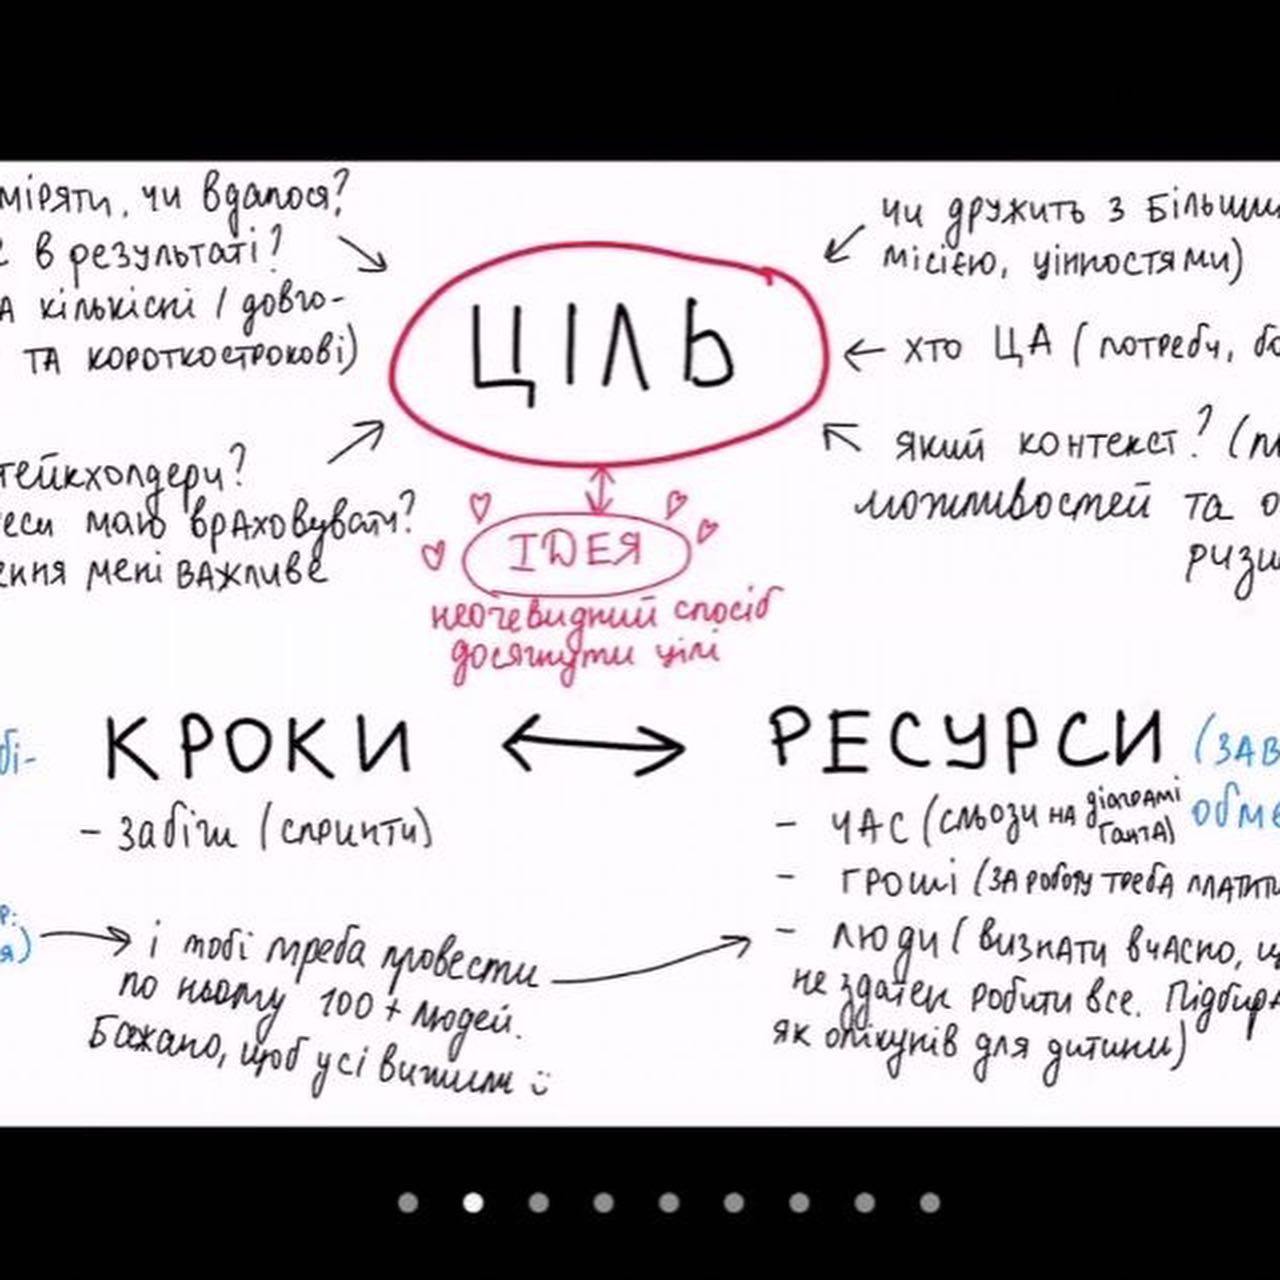 міряти, чи вдалося?
є в результаті?
А кількісні / довго-
ТА короткострокові)
тейкхолдери?
еси маю враховувати?
ення мені важливе
ЦІЛЬ
чи дружить з більши
місією, цінностями)
хто ЦА (потреби, бо
який контекст? (п
можливостей та о
ризи
ІДЕЯ
неочевидний спосіб
досягнути цілі
бі-
КРОКИ
- забіги (спринти)
Р:
я)
і тобі треба провести
по ньому 100 + людей.
Бажано, щоб усі вижили
РЕСУРСИ (зав
обме
- ЧАС (сльози на діаграмі
Ганта)
- гроші (за роботу треба платити
- люди (визнати вчасно, щ
не здатен робити все. Підбира
як опікунів для дитини)